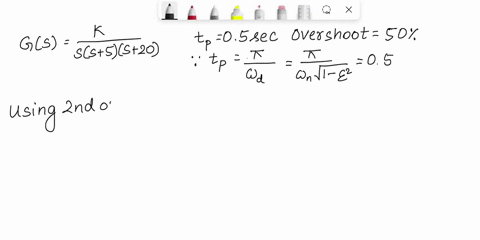 G(s) = K / s(s+5)(s+20)
tp = 0.5 sec Overshoot = 50%
∵ tp = π / ωd = π / ωn√1-ξ² = 0.5
Using 2nd o